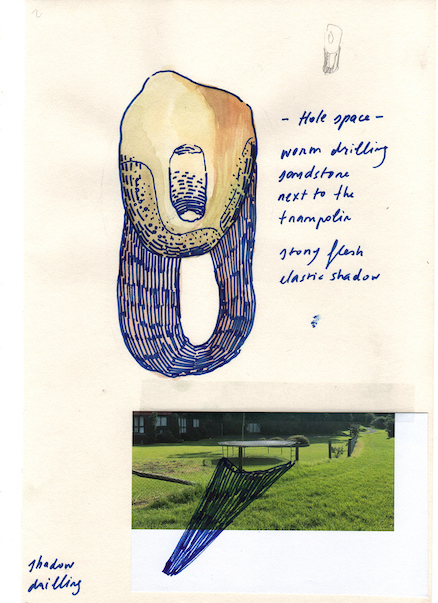 - Hole space -
worm drilling
sandstone
next to the
trampolin
stony flesh
elastic shadow
shadow
drilling